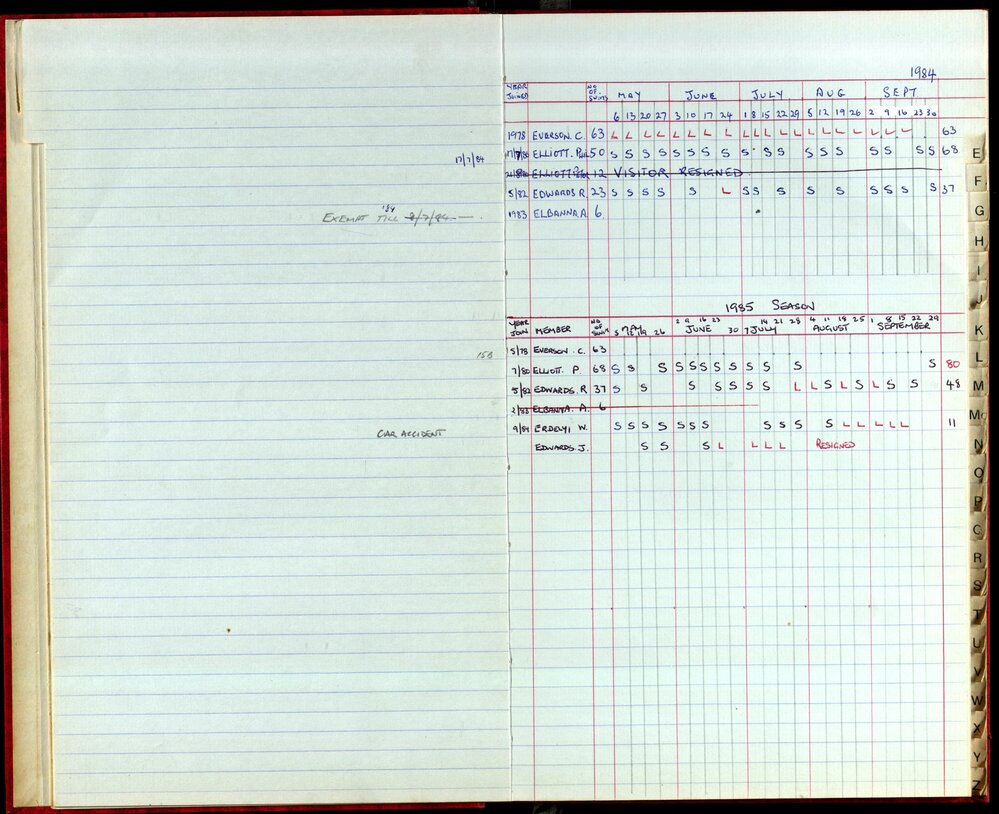 1984
YEAR JOINED NO OF SWIMS MAY JUNE JULY AUG SEPT
6 13 20 27 3 10 17 24 1 8 15 22 29 5 12 19 26 2 9 16 23 30
1978 EVERSON. C. 63 L L L L L L L L L L L L L L L L L L L L 63
17/7/84 17/7/80 ELLIOTT. Paul 50 S S S S S S S S S S S S S S S S S S S 68
ELLIOTT. Peter 12 VISITOR RESIGNED
5/82 EDWARDS R 23 S S S S S L S S S S S S S S S 37
EXEMPT TILL '84 1983 ELBANNA A 6.
1985 SEASON
YEAR JOIN MEMBER NO OF SWIMS MAY JUNE JULY AUGUST SEPTEMBER
5 12 19 26 2 9 16 23 30 7 14 21 28 4 11 18 25 1 8 15 22 29
5/78 EVERSON. C. 63
158 7/80 ELLIOTT. P. 68 S S S S S S S S S S S S S 80
5/82 EDWARDS. R 37 S S S S S S S L L S L S L S S 48
2/83 ELBANNA. A. 6
CAR ACCIDENT 9/84 ERDENYI W. S S S S S S S S S S S L L L L L 11
EDWARDS. J. S S S L L L L RESIGNED
E
F
G
H
I
J
K
L
M
Mc
N
O
P
Q
R
S
T
U
V
W
X
Y
Z